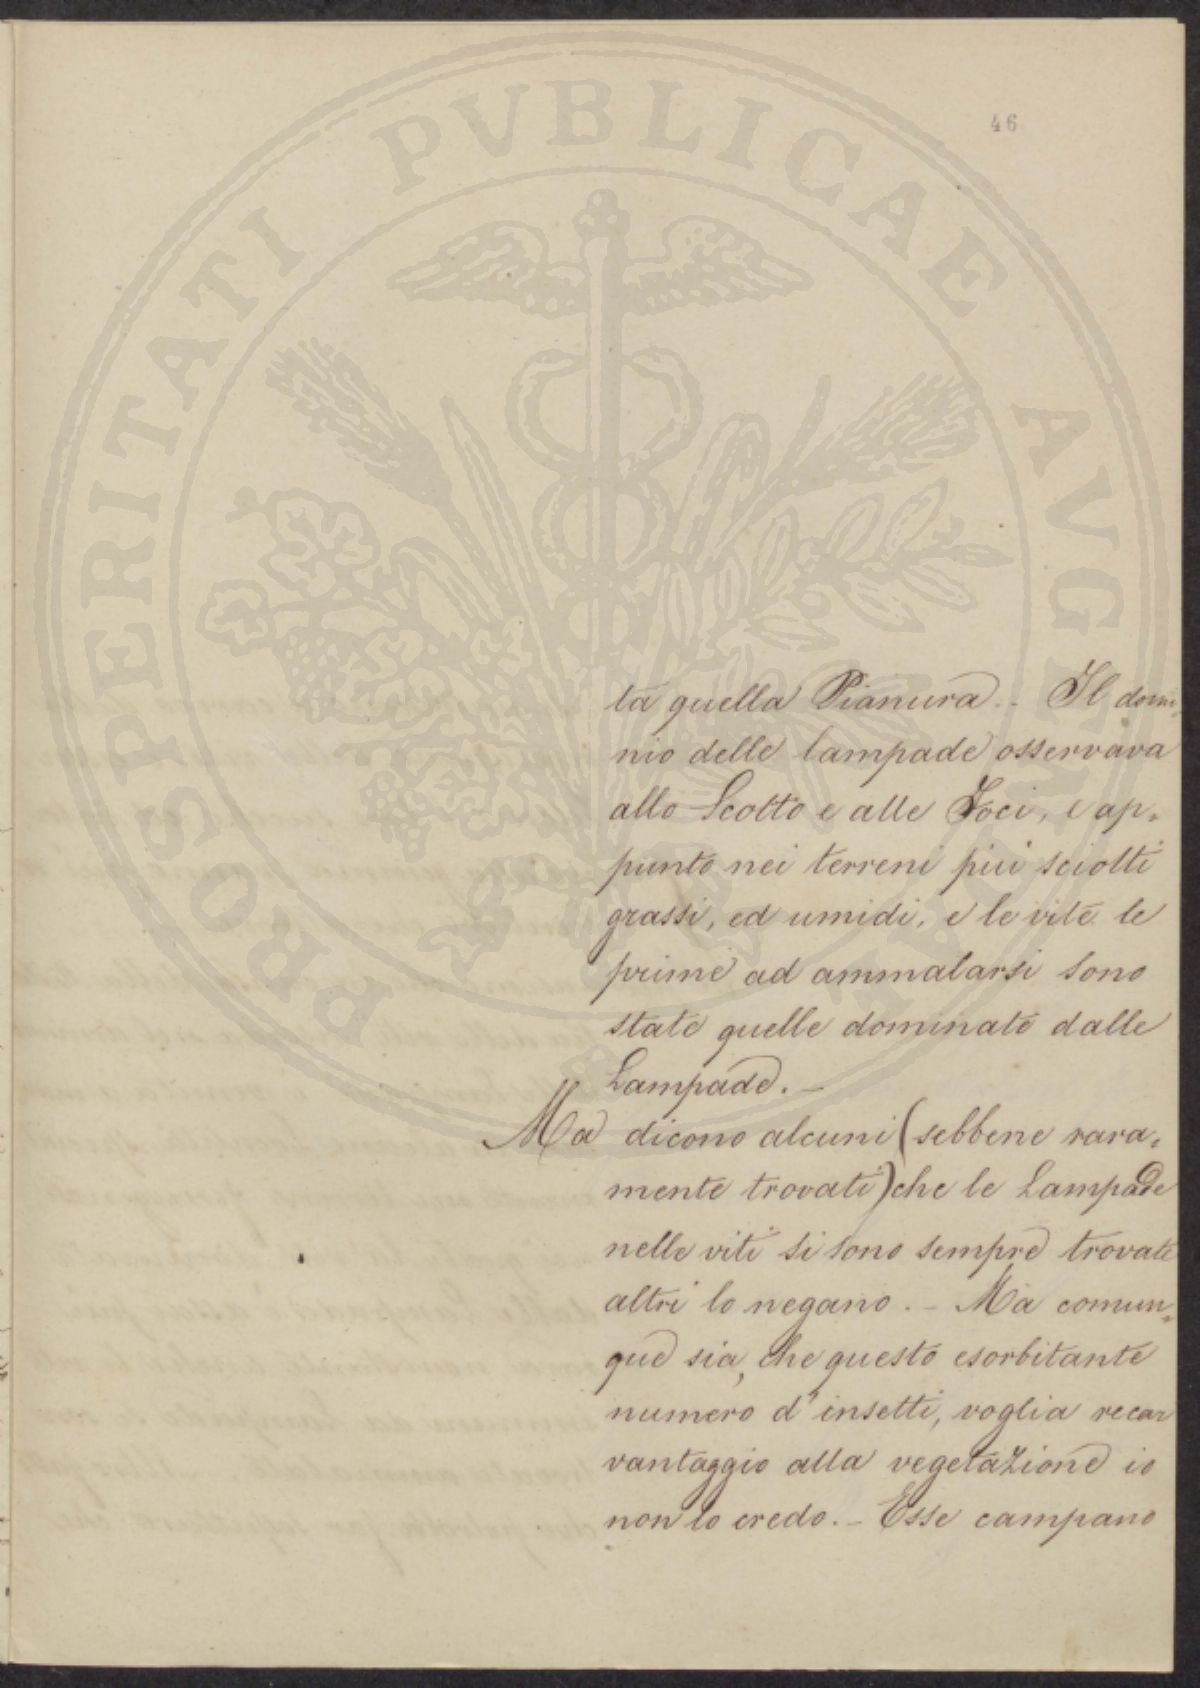 46
PROSPERITATI PVBLICAE AVGENDAE
ta quella Pianura. - Il domi-
nio delle lampade osservava
allo Scotto e alle Foci, e ap=
punto nei terreni più sciolti
grassi, ed umidi, e le vite le
prime ad ammalarsi sono
state quelle dominate dalle
Lampade. -
Ma dicono alcuni (sebbene rara=
mente trovati) che le Lampade
nelle viti si sono sempre trovate
altri lo negano. - Ma comun=
que sia, che questo esorbitante
numero d'insetti, voglia recar
vantaggio alla vegetazione io
non lo credo. - Esse campano